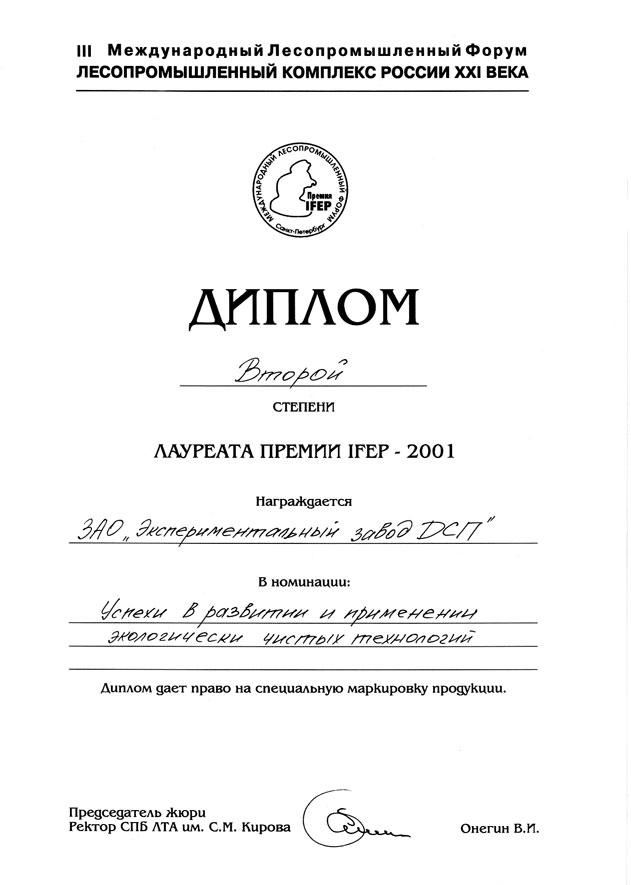 III Международный Лесопромышленный Форум
ЛЕСОПРОМЫШЛЕННЫЙ КОМПЛЕКС РОССИИ XXI ВЕКА
МЕЖДУНАРОДНЫЙ ЛЕСОПРОМЫШЛЕННЫЙ ФОРУМ
Премия
IFEP
Санкт-Петербург
ДИПЛОМ
Второй
СТЕПЕНИ
ЛАУРЕАТА ПРЕМИИ IFEP - 2001
Награждается
ЗАО „Экспериментальный завод ДСП"
В номинации:
Успехи в развитии и применении
экологически чистых технологий
Диплом дает право на специальную маркировку продукции.
Председатель жюри
Ректор СПБ ЛТА им. С.М. Кирова
Онегин В.И.